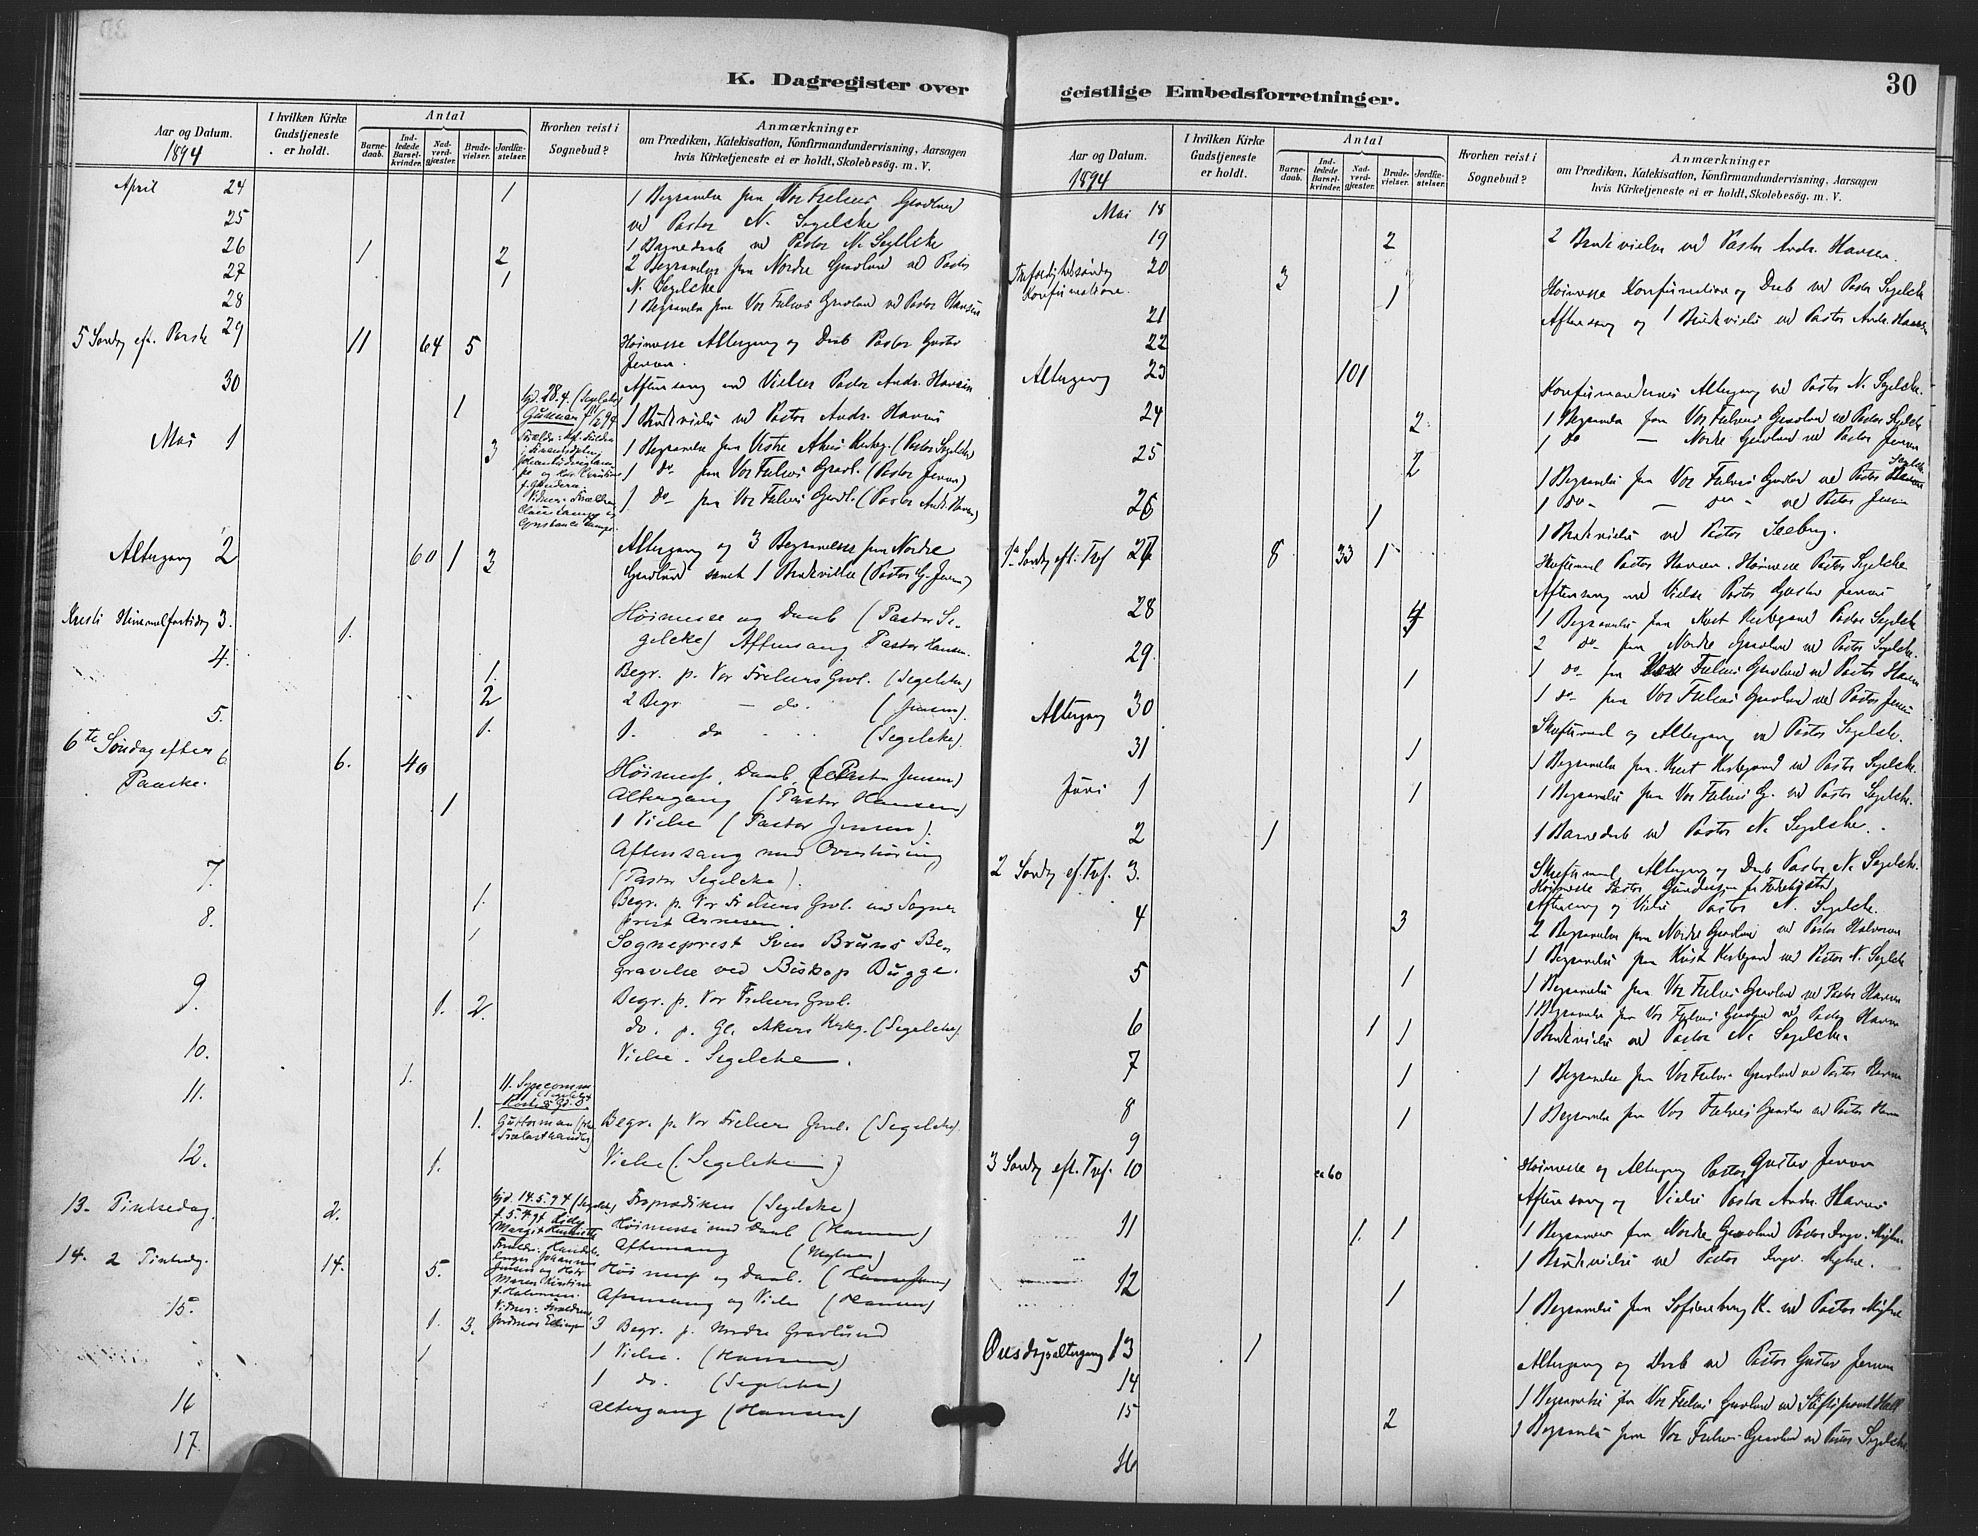 K. Dagregister over
Aar og Datum.
1894
I hvilken Kirke
Gudstjeneste
er holdt.
Antal
Barne-
daab.
Ind-
ledede
Barsel-
kvinder.
Nad-
verd-
gjæster.
Brude-
vielser.
Jordfæ-
stelser.
Hvorhen reist i
Sognebud?
Anmærkninger
om Prædiken, Katekisation, Konfirmandundervisning, Aarsagen
hvis Kirketjeneste ei er holdt, Skolebesøg. m. V.
April 24 1 1 Begravelse fra Vor Frelsers Gravlund
25 ved Pastor N. Segelcke
26 1 2 1 Barnedaab ved Pastor N. Segelcke
27 1 2 Begravelser fra Nordre Gravlund ved Pastor
N. Segelcke
28 1 Begravelse fra Vor Frelsers Gravlund ved Pastor Hansen
5 Søndag eft. Paaske 29 11 64 5 Høimesse Altergang og Daab Pastor Gustav
Jensen.
30 Aftensang med Vielser Pastor Andr. Hansen
1 1 Brudevielse ved Pastor Andr. Hansen
Mai 1 3 1 Begravelse fra Vestre Akers Kirkeg. (Pastor Segelcke)
1 do fra Vor Frelsers Gravl. (Pastor Jensen)
1 do fra Vor Frelsers Gravl. (Pastor Andr. Hansen)
Altergang 2 60 1 3 Altergang og 3 Begravelser fra Nordre
Gravlund samt 1 Brudevielse (Pastor G. Jensen)
Kristi Himmelfartsdag 3. 1. Høimesse og Daab (Pastor Se-
gelcke) Aftensang Pastor Hansen.
4. 1. Begr. p. Vor Frelsers Gravl. (Segelcke)
2 2 Begr — do. (Jensen).
5. 1. 1. do (Segelcke).
6te Søndag efter 6
Paaske. 6. 40 Høimesse, Daab, (Pastor Jensen)
Altergang (Pastor Hansen)
1 1 Vielse (Pastor Jensen).
Aftensang med Overhøring
(Pastor Segelcke).
7. 1. Begr. p. Vor Frelsers Gravl. ved Sogne-
prest Arnesen.
8. 1 Sogneprest Sven Bruns Be-
gravelse ved Biskop Bugge.
9. 1. 2. Begr. p. Vor Frelsers Gravl.
do. p. Gl. Akers Kirkg. (Segelcke).
10. Vielse. Segelcke.
1.
11. 1. Begr. p. Vor Frelsers Gravl. (Segelcke).
12. 1. Vielse (Segelcke)
13. Pintsedag. 2. Froprædiken (Segelcke)
Høimesse med Daab (Hansen)
Aftensang
14. 2 Pintsedag. 14. 5. Høimesse og Daab. (Jensen)
Aftensang og Vielse (Hansen)
15. 1. 3. 3 Begr. p. Nordre Gravlund
1 1 Vielse. (Hansen)
1 do. (Segelcke)
16 Altergang (Hansen)
17
geistlige Embedsforretninger.
30
Aar og Datum.
1894
I hvilken Kirke
Gudstjeneste
er holdt.
Antal
Barne-
daab.
Ind-
ledede
Barsel-
kvinder.
Nad-
verd-
gjæster.
Brude-
vielser.
Jordfæ-
stelser.
Hvorhen reist i
Sognebud?
Anmærkninger
om Prædiken, Katekisation, Konfirmandundervisning, Aarsagen
hvis Kirketjeneste ei er holdt, Skolebesøg. m. V.
Mai 18
19 2 2 Brudevielser ved Pastor Andr. Hansen.
Trefoldighedssøndag 20 3 Høimesse Konfirmation og Daab ved Pastor Segelcke
Konfirmation. 1 Aftensang og 1 Brudevielse ved Pastor Andr. Hansen
21
22
Altergang 23 101 Konfirmandernes Altergang ved Pastor N. Segelcke.
24 2 1 Begravelse fra Vor Frelsers Gravlund ved Pastor Segelcke
1 do — Nordre Gravlund ved Pastor Jensen
25 2 1 Begravelse fra Vor Frelsers Gravlund ved Pastor Segelcke
1 do — do — ved Pastor Jensen
26 1 1 Brudevielse ved Pastor Seeberg.
1ste Søndag eft. Tref 27 8 33 1 Skriftemaal Pastor Hansen. Høimesse Pastor Segelcke
Aftensang med Vielse Pastor Gustav Jensen
28 4 1 Begravelse fra Krist Kirkegaard Pastor Segelcke
2 do fra Nordre Gravlund Pastor Segelcke.
29. 1 do fra Vor Frelsers Gravlund ved Pastor Hansen
1 1 do fra Vor Frelsers Gravlund ved Pastor Jensen
Altergang 30 Skriftemaal og Altergang ved Pastor Segelcke.
31 1 1 Begravelse fra Krist Kirkegaard ved Pastor Segelcke.
Juni 1 1 1 Begravelse fra Vor Frelsers G. ved Pastor Segelcke.
2 1 1 Barnedaab ved Pastor N. Segelcke.
2 Søndag ef. Tref. 3. Skriftemaal, Altergang og Daab Pastor N. Segelcke.
Høimesse Pastor Gundersen fr. Fredrikstad
Aftensang og Vielse Pastor N. Segelcke.
4 3 2 Begravelser fra Nordre Gravlund ved Pastor Halvorsen
1 Begravelse fra Krist Kirkegaard ved Pastor N. Segelcke
5 1 1 Begravelse fra Vor Frelsers Gravlund ved Pastor Hansen
1 Begravelse fra Vor Frelsers Gravlund ved Pastor Hansen
6 1 1 1 Brudevielse ved Pastor N. Segelcke.
7 1 1 Begravelse fra Vor Frelsers Gravlund ved Pastor Hansen
8 1 1 Begravelse fra Vor Frelsers Gravlund ved Pastor Hansen
9
3 Søndag eft. Tref. 10 ca 60 Høimesse og Altergang Pastor Gustav Jensen
Aftensang og Vielse Pastor Andr. Hansen
11 1. 1 1 Begravelse fra Nordre Gravlund Pastor Ingv. Myhre.
1 Brudevielse ved Pastor Ingv. Myhre.
12 1 1 Begravelse fra Sofienberg K. ved Pastor Myhre
Onsdagsaltergang 13 1 Altergang og Daab ved Pastor Gustav Jensen
14 1 Begravelse fra Vor Frelsers Gravlund ved Stiftsprovst Hall
15 2 1 Begravelse fra Vor Frelsers Gravlund ved Pastor Segelcke
16